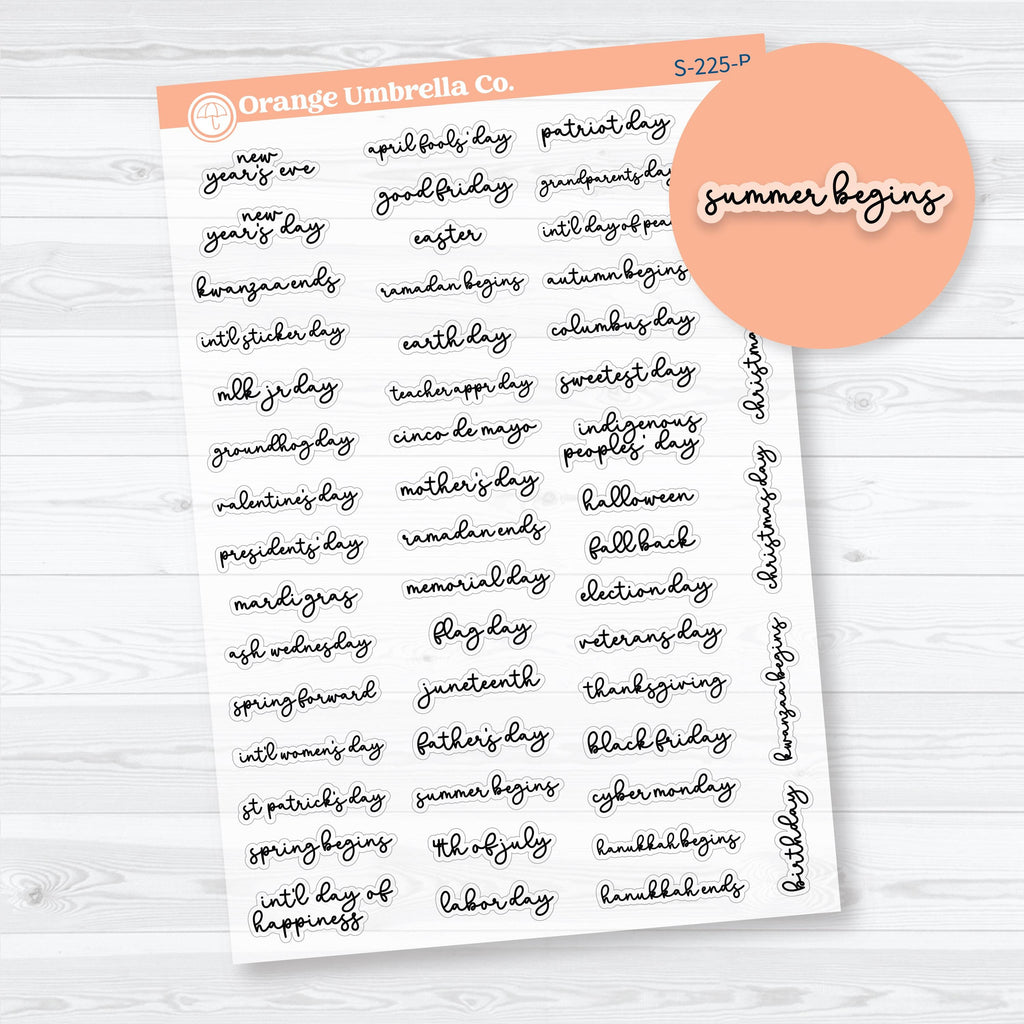 Orange Umbrella Co.
S-225-B
new
year's eve
new
year's day
kwanzaa ends
int'l sticker day
mlk jr day
groundhog day
valentine's day
presidents' day
mardi gras
ash wednesday
spring forward
int'l women's day
st patrick's day
spring begins
int'l day of
happiness
april fools' day
good friday
easter
ramadan begins
earth day
teacher appr day
cinco de mayo
mother's day
ramadan ends
memorial day
flag day
juneteenth
father's day
summer begins
4th of july
labor day
patriot day
grandparents day
int'l day of pea
autumn begins
columbus day
sweetest day
indigenous
peoples' day
halloween
fall back
election day
veterans day
thanksgiving
black friday
cyber monday
hanukkah begins
hanukkah ends
christma
christmas day
kwanzaa begins
birthday
summer begins